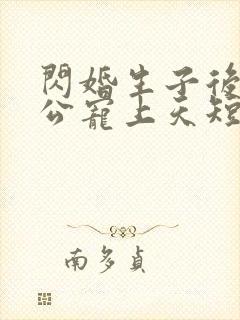 閃婚生子後
公寵上天短
南多貞